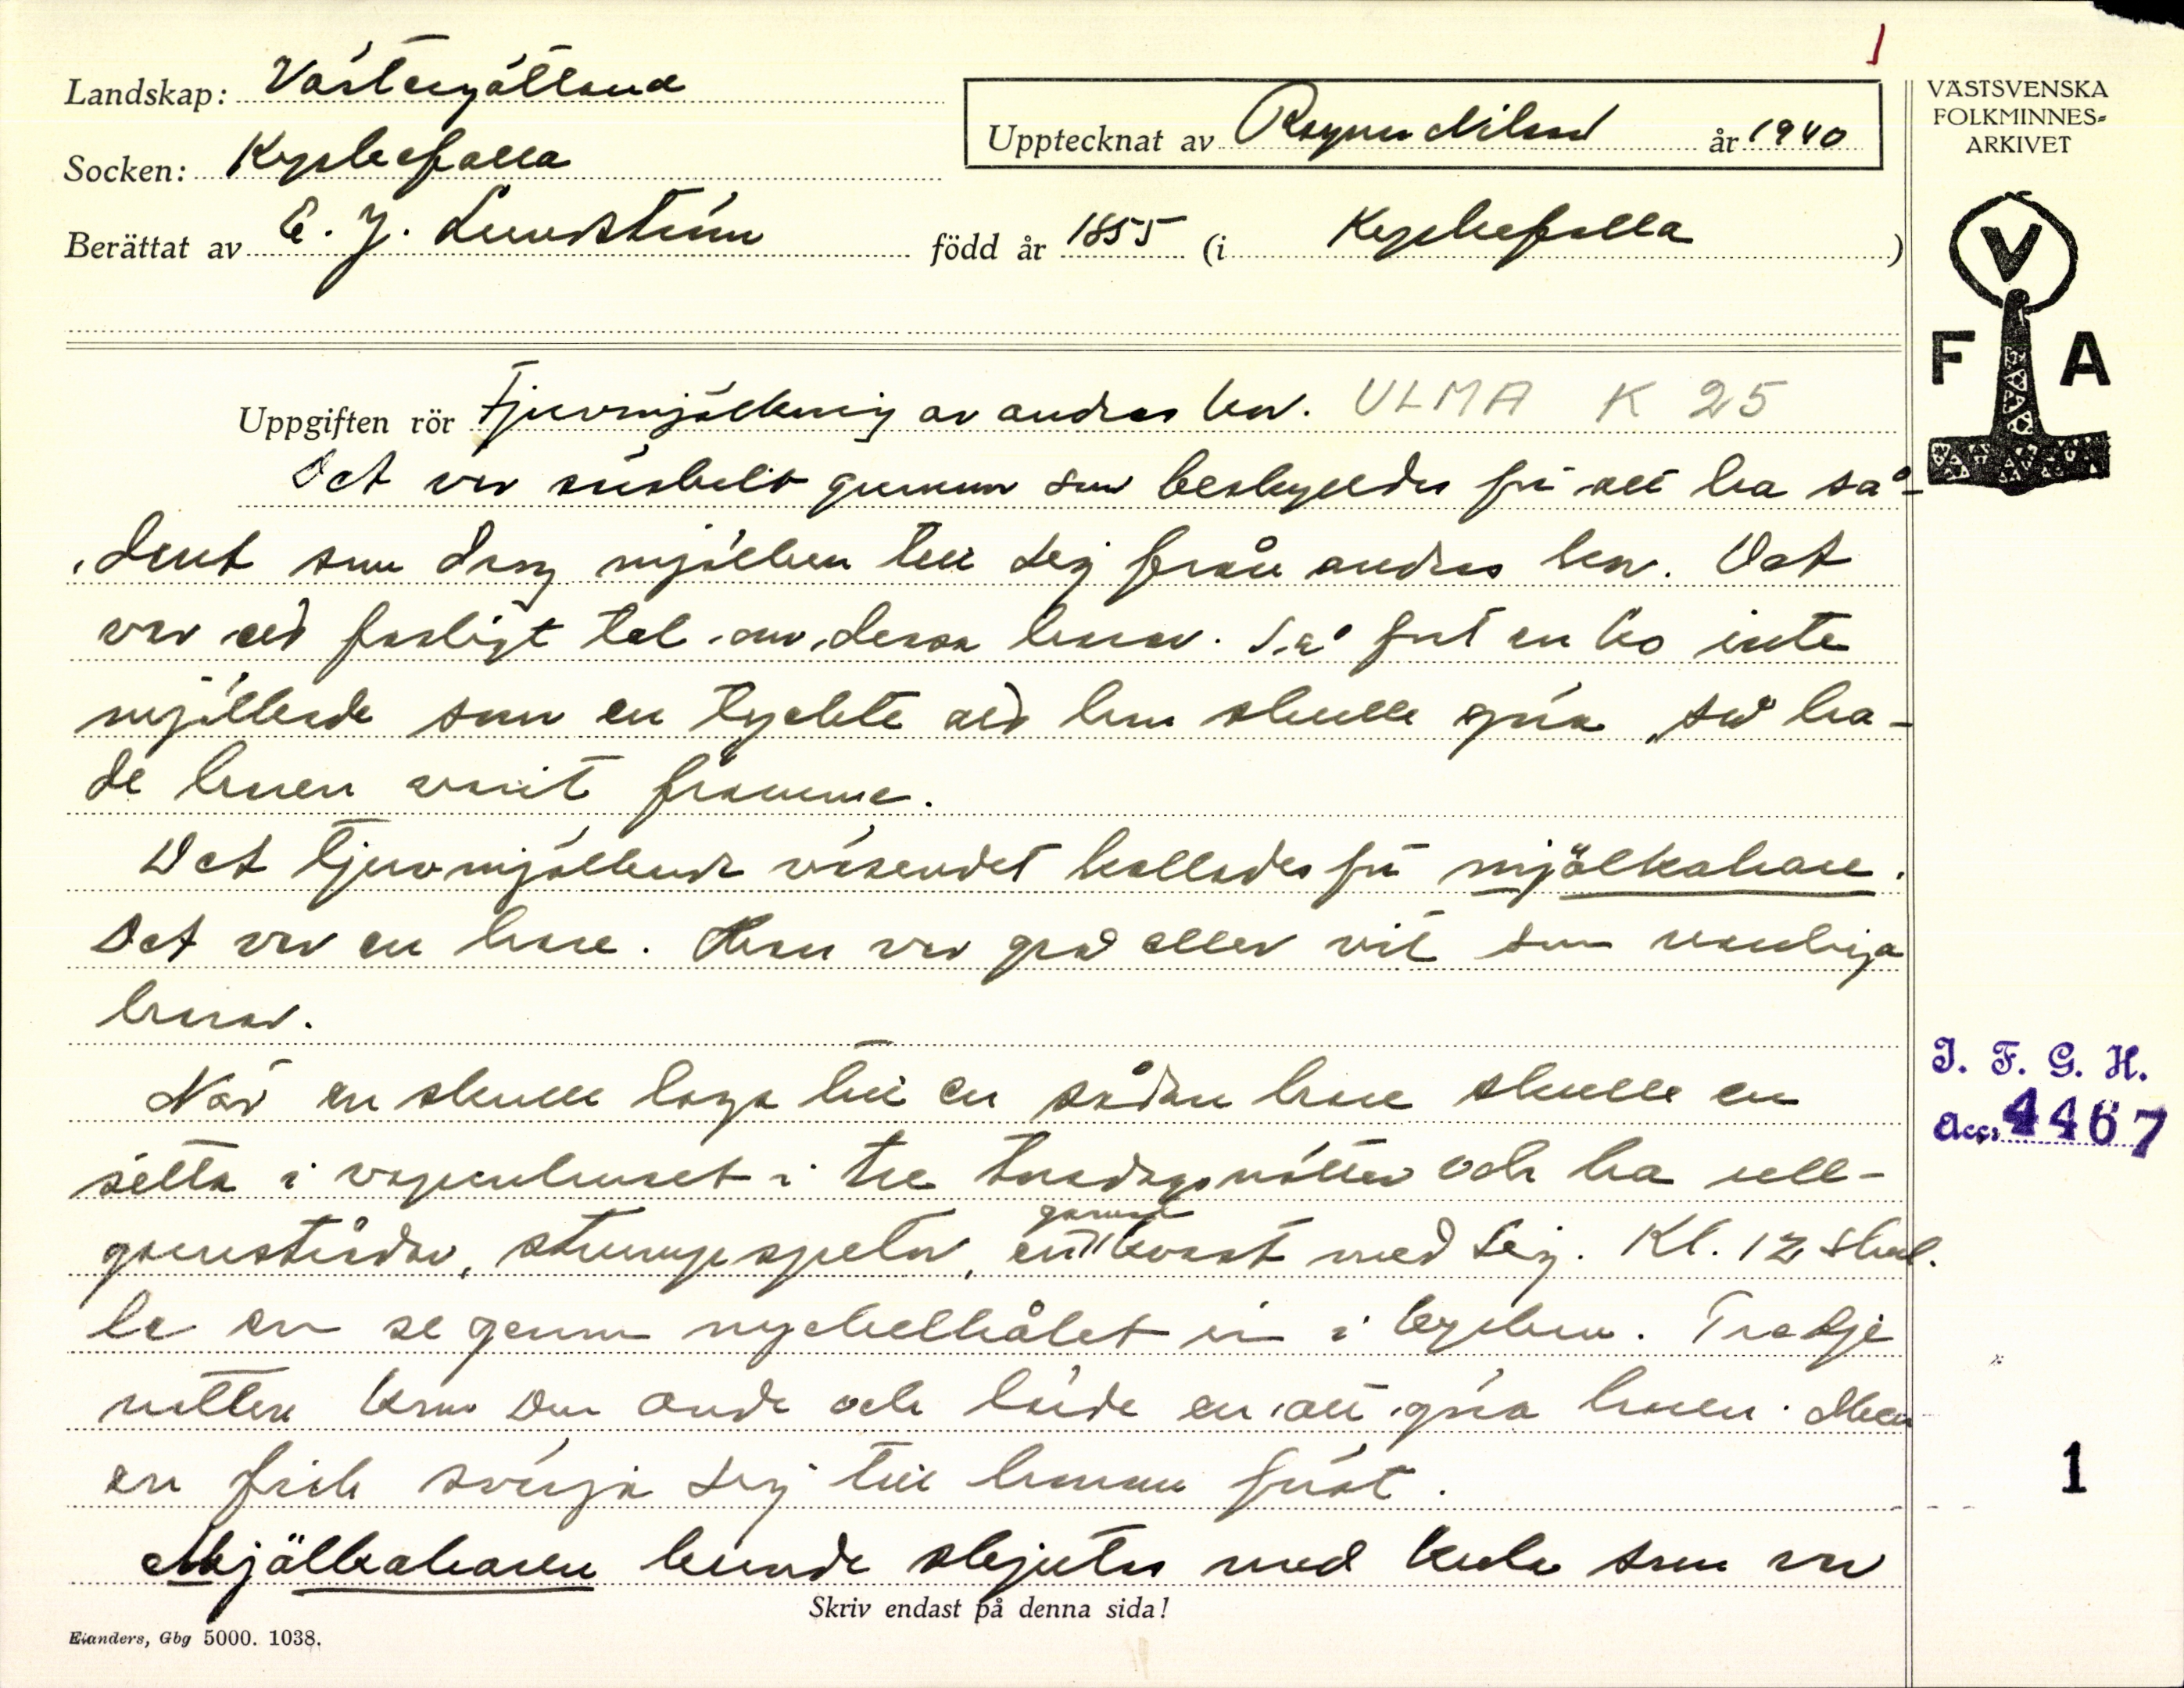 1
Landskap: Västergötland
Upptecknat av Ragnar Nilsson år 1940
Socken: Kyrkefalla
Berättat av E. J. Lundström född år 1855 (i Kyrkefalla)
VÄSTSVENSKA
FOLKMINNES-
ARKIVET
V
F A
Uppgiften rör Tjuvmjölkning av andras kor. ULMA K 25
Det var särskilt gummor som beskylldes för att ha så-
dent som drog mjölken till sej från andras kor. Det
var ett fasligt tal om dessa harar. Så fort en ko inte
mjölkade som en tyckte att hon skulle göra, så ha-
de haren varit framme.
Det tjuvmjölkande väsendet kallades för mjölkahare.
Det var en hare. Han var grå eller vit som vanliga
harar.
När en skulle laga till en sådan hare skulle en
sitta i vapenhuset i tre torsdagsnätter och ha ull-
garnstrådar, strumpspetar, en gammal kvast med sej. Kl. 12 skul-
le en se genom nyckelhålet in i kyrkan. Tredje
natten kom Den onde och lärde en att göra haren. Men
en fick svärja sej till honom först.
Mjölkaharen kunde skjutas med kula som var
Skriv endast på denna sida!
Elanders, Gbg 5000. 1038.
I. F. G. H.
Acc. 4467
1